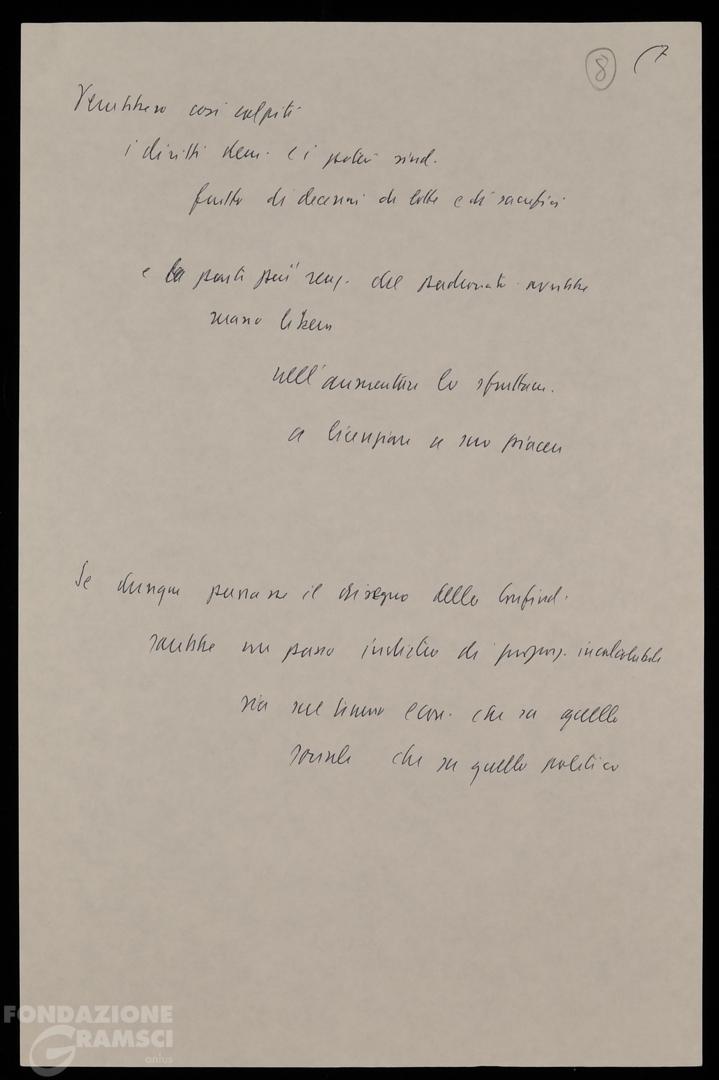 8 (7
Verrebbero così colpiti
i diritti dem. e i poteri sind.
frutto di decenni di lotte e di sacrifici
e la parte più reaz. del padronato avrebbe
mano libera
nell'aumentare lo sfruttam.
a licenziare a suo piacere
Se dunque passasse il disegno della Confind.
sarebbe un passo indietro di proporz. incalcolabili
sia sul terreno econ. che su quello
sociale che su quello politico
FONDAZIONE
GRAMSCI
onlus